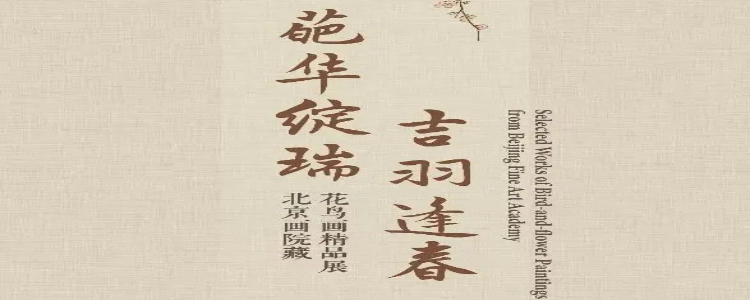 吉羽逢春
葩华绽瑞
花鸟画精品展
北京画院藏
Selected Works of Bird-and-flower Paintings
from Beijing Fine Art Academy